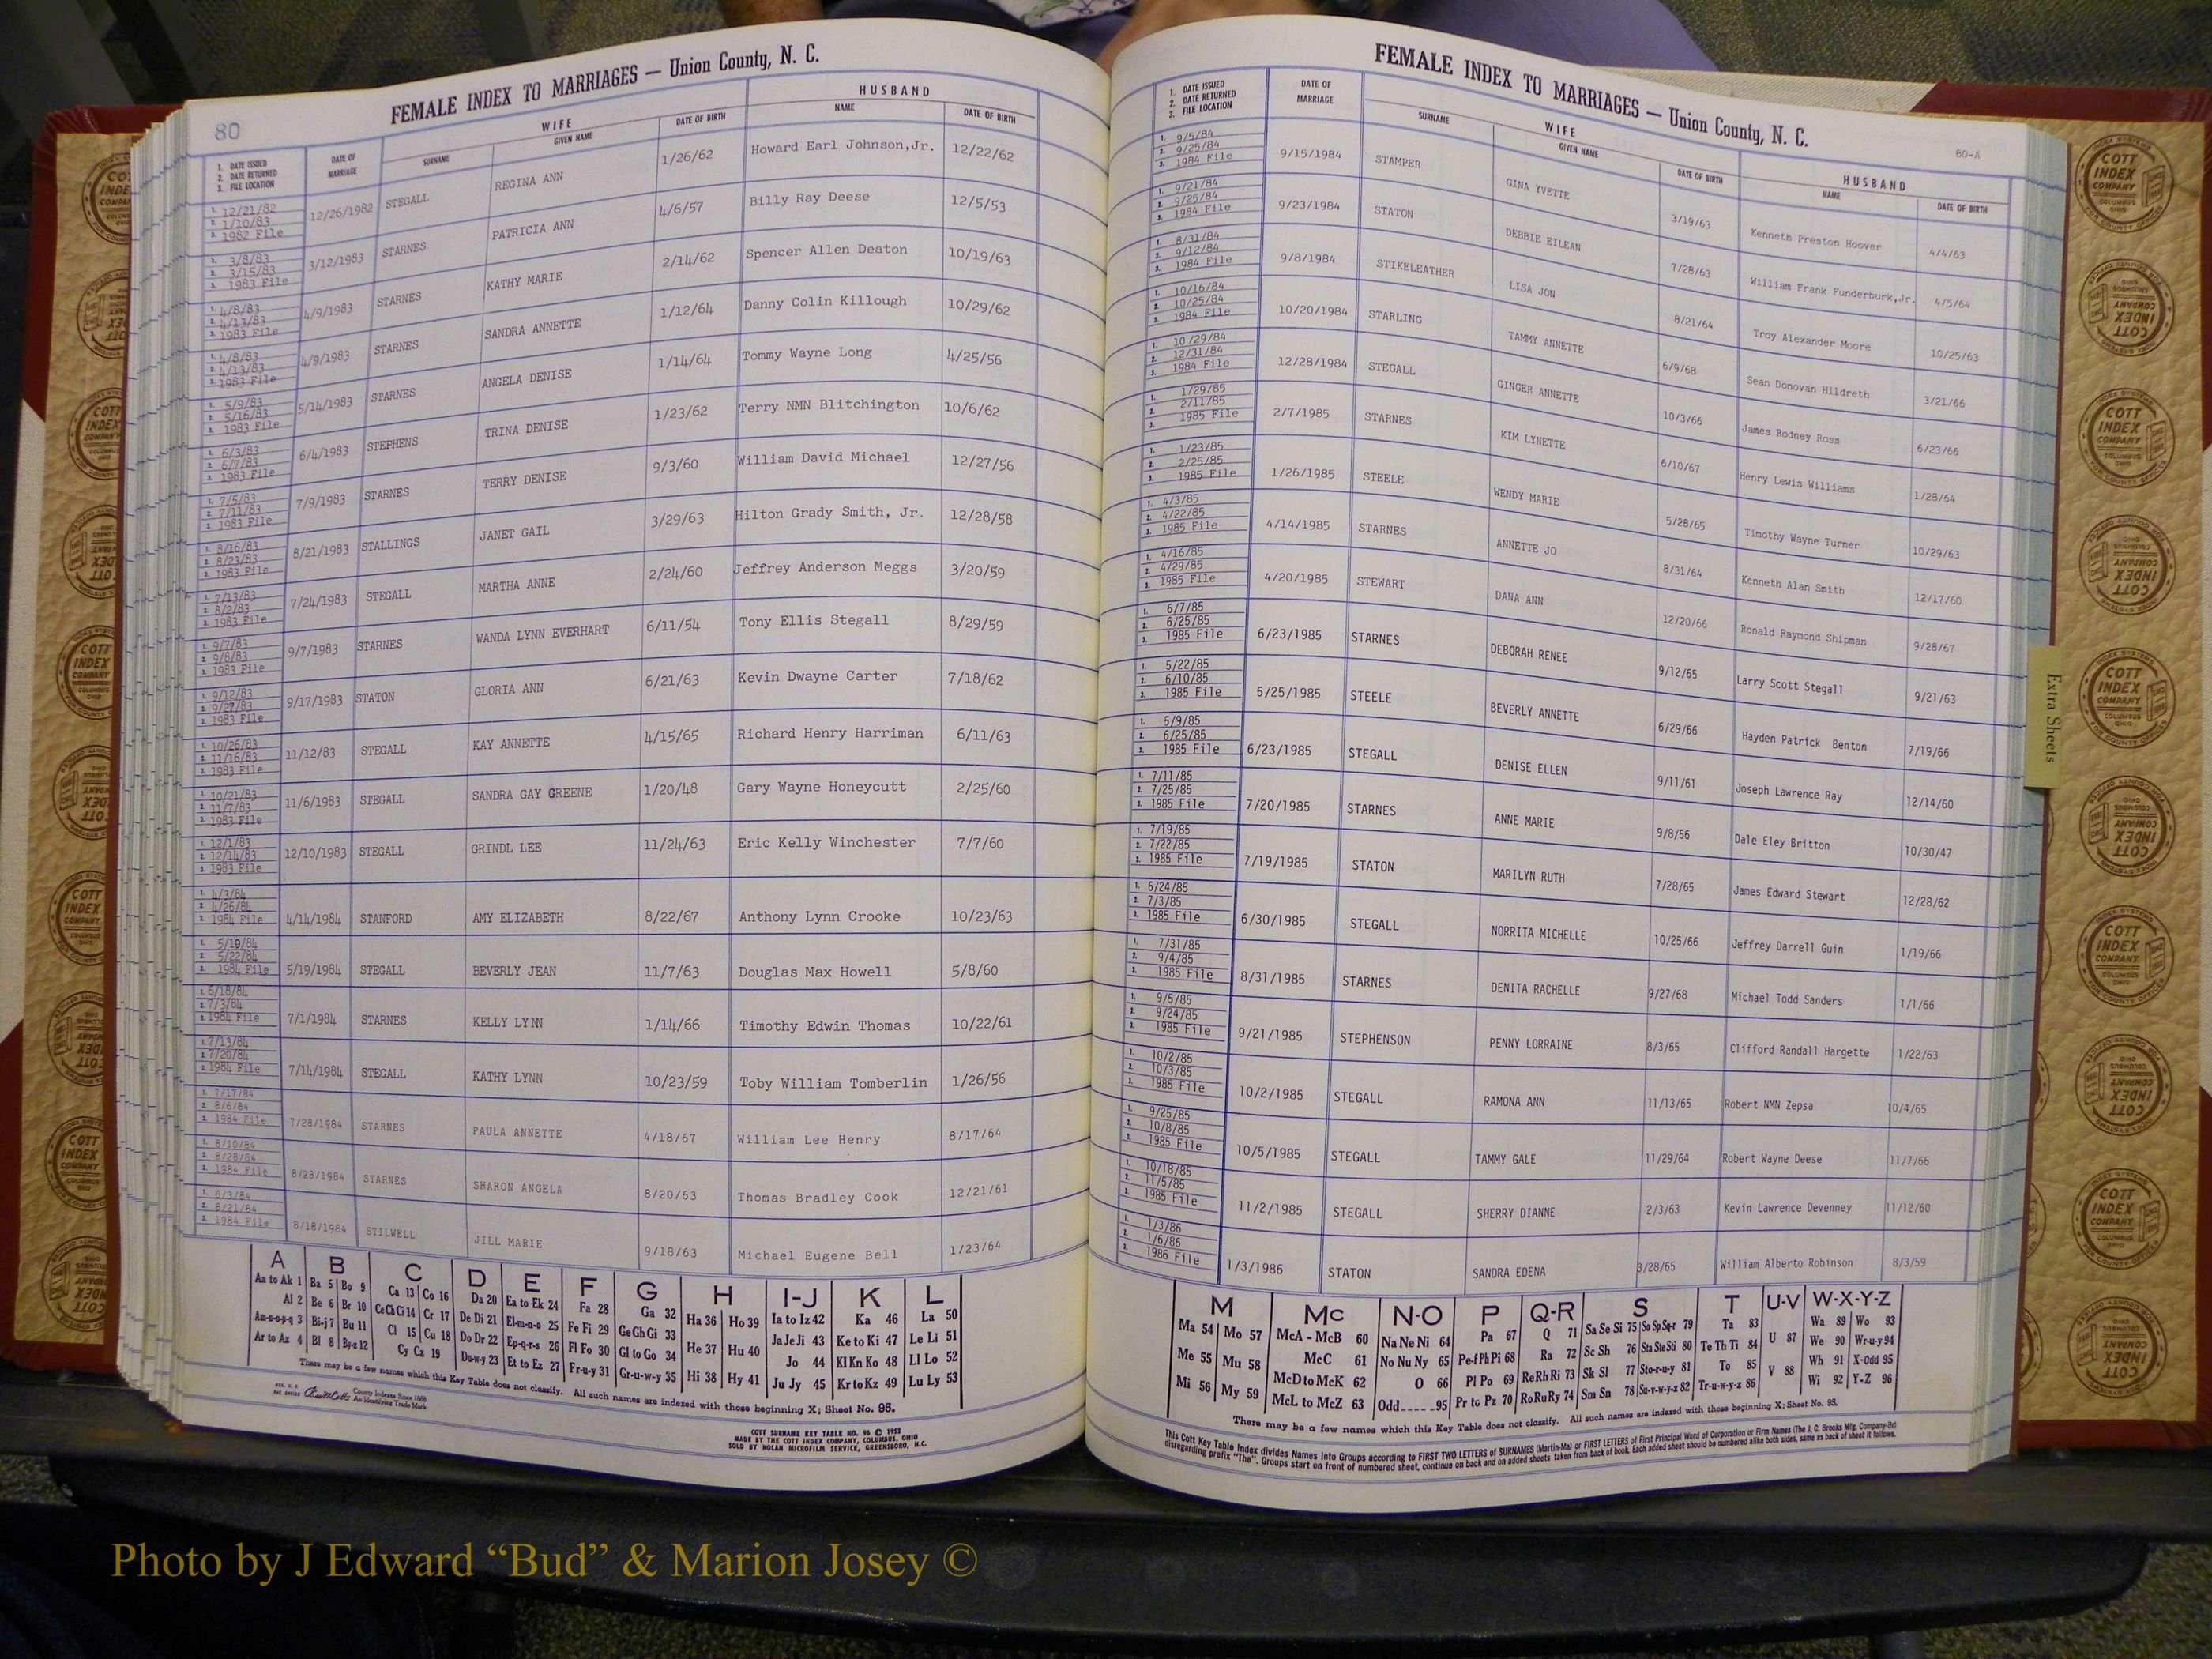 FEMALE INDEX TO MARRIAGES — Union County, N. C.
80
1. DATE ISSUED
2. DATE RETURNED
3. FILE LOCATION
DATE OF MARRIAGE
WIFE
SURNAME GIVEN NAME DATE OF BIRTH
HUSBAND
NAME DATE OF BIRTH
1. 12/21/82 2. 1/10/83 3. 1982 File 12/26/1982 STEGALL REGINA ANN 1/26/62 Howard Earl Johnson,Jr. 12/22/62
1. 3/8/83 2. 3/15/83 3. 1983 File 3/12/1983 STARNES PATRICIA ANN 4/6/57 Billy Ray Deese 12/5/53
1. 4/8/83 2. 4/13/83 3. 1983 File 4/9/1983 STARNES KATHY MARIE 2/14/62 Spencer Allen Deaton 10/19/63
1. 4/8/83 2. 4/13/83 3. 1983 File 4/9/1983 STARNES SANDRA ANNETTE 1/12/64 Danny Colin Killough 10/29/62
1. 5/9/83 2. 5/16/83 3. 1983 File 5/14/1983 STARNES ANGELA DENISE 1/14/64 Tommy Wayne Long 4/25/56
1. 6/3/83 2. 6/7/83 3. 1983 File 6/4/1983 STEPHENS TRINA DENISE 1/23/62 Terry NMN Blitchington 10/6/62
1. 7/5/83 2. 7/11/83 3. 1983 File 7/9/1983 STARNES TERRY DENISE 9/3/60 William David Michael 12/27/56
1. 8/16/83 2. 8/23/83 3. 1983 File 8/21/1983 STALLINGS JANET GAIL 3/29/63 Hilton Grady Smith, Jr. 12/28/58
1. 7/13/83 2. 8/2/83 3. 1983 File 7/24/1983 STEGALL MARTHA ANNE 2/24/60 Jeffrey Anderson Meggs 3/20/59
1. 9/7/83 2. 9/8/83 3. 1983 File 9/7/1983 STARNES WANDA LYNN EVERHART 6/11/54 Tony Ellis Stegall 8/29/59
1. 9/12/83 2. 9/27/83 3. 1983 File 9/17/1983 STATON GLORIA ANN 6/21/63 Kevin Dwayne Carter 7/18/62
1. 10/26/83 2. 11/16/83 3. 1983 File 11/12/83 STEGALL KAY ANNETTE 4/15/65 Richard Henry Harriman 6/11/63
1. 10/21/83 2. 11/7/83 3. 1983 File 11/6/1983 STEGALL SANDRA GAY GREENE 1/20/48 Gary Wayne Honeycutt 2/25/60
1. 12/1/83 2. 12/14/83 3. 1983 File 12/10/1983 STEGALL GRINDL LEE 11/24/63 Eric Kelly Winchester 7/7/60
1. 4/3/84 2. 4/26/84 3. 1984 File 4/14/1984 STANFORD AMY ELIZABETH 8/22/67 Anthony Lynn Crooke 10/23/63
1. 5/10/84 2. 5/22/84 3. 1984 File 5/19/1984 STEGALL BEVERLY JEAN 11/7/63 Douglas Max Howell 5/8/60
1. 6/18/84 2. 7/3/84 3. 1984 File 7/1/1984 STARNES KELLY LYNN 1/14/66 Timothy Edwin Thomas 10/22/61
1. 7/13/84 2. 7/20/84 3. 1984 File 7/14/1984 STEGALL KATHY LYNN 10/23/59 Toby William Tomberlin 1/26/56
1. 7/17/84 2. 8/6/84 3. 1984 File 7/28/1984 STARNES PAULA ANNETTE 4/18/67 William Lee Henry 8/17/64
1. 8/10/84 2. 8/28/84 3. 1984 File 8/28/1984 STARNES SHARON ANGELA 8/20/63 Thomas Bradley Cook 12/21/61
1. 8/3/84 2. 8/21/84 3. 1984 File 8/18/1984 STILWELL JILL MARIE 9/18/63 Michael Eugene Bell 1/23/64
A B C D E F G H I-J K L
Aa to Ak 1 Ba 5 Bo 9 Ca 13 Co 16 Da 20 Ea to Ek 24 Fa 28 Ga 32 Ha 36 Ho 39 Ia to Iz 42 Ka 46 La 50
Al 2 Be 6 Br 10 Ce Ch Ci 14 Cr 17 De Di 21 El-m-n-o 25 Fe Fi 29 Ge Gh Gi 33 He 37 Hu 40 Ja Je Ji 43 Ke to Ki 47 Le Li 51
Am-n-o-p-q 3 Bi-j 7 Bu 11 Cl 15 Cu 18 Do Dr 22 Ep-q-r-s 26 Fl Fo 30 Gl to Go 34 Hi 38 Hy 41 Jo 44 Kl Kn Ko 48 Ll Lo 52
Ar to Az 4 Bl 8 By-z 12 Cy Cz 19 Du-w-y 23 Et to Ez 27 Fr-u-y 31 Gr-u-w-y 35 Ju Jy 45 Kr to Kz 49 Lu Ly 53
There may be a few names which this Key Table does not classify. All such names are indexed with those beginning X; Sheet No. 95.
County Indexes Since 1888
An Identifying Trade Mark
COTT SURNAME KEY TABLE NO. 96 © 1952
MADE BY THE COTT INDEX COMPANY, COLUMBUS, OHIO
SOLD BY NOLAN MICROFILM SERVICE, GREENSBORO, N.C.
FEMALE INDEX TO MARRIAGES — Union County, N. C.
80-A
1. DATE ISSUED
2. DATE RETURNED
3. FILE LOCATION
DATE OF MARRIAGE
WIFE
SURNAME GIVEN NAME DATE OF BIRTH
HUSBAND
NAME DATE OF BIRTH
1. 9/5/84 2. 9/25/84 3. 1984 File 9/15/1984 STAMPER GINA YVETTE 3/19/63 Kenneth Preston Hoover 4/4/63
1. 9/21/84 2. 9/25/84 3. 1984 File 9/23/1984 STATON DEBBIE EILEAN 7/28/63 William Frank Funderburk,Jr. 4/5/64
1. 8/31/84 2. 9/12/84 3. 1984 File 9/8/1984 STIKELEATHER LISA JON 8/21/64 Troy Alexander Moore 10/25/63
1. 10/16/84 2. 10/25/84 3. 1984 File 10/20/1984 STARLING TAMMY ANNETTE 6/9/68 Sean Donovan Hildreth 3/21/66
1. 10/29/84 2. 12/31/84 3. 1984 File 12/28/1984 STEGALL GINGER ANNETTE 10/3/66 James Rodney Ross 6/23/66
1. 1/29/85 2. 2/11/85 3. 1985 File 2/7/1985 STARNES KIM LYNETTE 6/10/67 Henry Lewis Williams 1/28/64
1. 1/23/85 2. 2/25/85 3. 1985 File 1/26/1985 STEELE WENDY MARIE 5/28/65 Timothy Wayne Turner 10/29/63
1. 4/3/85 2. 4/22/85 3. 1985 File 4/14/1985 STARNES ANNETTE JO 8/31/64 Kenneth Alan Smith 12/17/60
1. 4/16/85 2. 4/29/85 3. 1985 File 4/20/1985 STEWART DANA ANN 12/20/66 Ronald Raymond Shipman 9/28/67
1. 6/7/85 2. 6/25/85 3. 1985 File 6/23/1985 STARNES DEBORAH RENEE 9/12/65 Larry Scott Stegall 9/21/63
1. 5/22/85 2. 6/10/85 3. 1985 File 5/25/1985 STEELE BEVERLY ANNETTE 6/29/66 Hayden Patrick Benton 7/19/66
1. 5/9/85 2. 6/25/85 3. 1985 File 6/23/1985 STEGALL DENISE ELLEN 9/11/61 Joseph Lawrence Ray 12/14/60
1. 7/11/85 2. 7/25/85 3. 1985 File 7/20/1985 STARNES ANNE MARIE 9/8/56 Dale Eley Britton 10/30/47
1. 7/19/85 2. 7/22/85 3. 1985 File 7/19/1985 STATON MARILYN RUTH 7/28/65 James Edward Stewart 12/28/62
1. 6/24/85 2. 7/3/85 3. 1985 File 6/30/1985 STEGALL NORRITA MICHELLE 10/25/66 Jeffrey Darrell Guin 1/19/66
1. 7/31/85 2. 9/4/85 3. 1985 File 8/31/1985 STARNES DENITA RACHELLE 9/27/68 Michael Todd Sanders 1/1/66
1. 9/5/85 2. 9/24/85 3. 1985 File 9/21/1985 STEPHENSON PENNY LORRAINE 8/3/65 Clifford Randall Hargette 1/22/63
1. 10/2/85 2. 10/3/85 3. 1985 File 10/2/1985 STEGALL RAMONA ANN 11/13/65 Robert NMN Zepsa 10/4/65
1. 9/25/85 2. 10/8/85 3. 1985 File 10/5/1985 STEGALL TAMMY GALE 11/29/64 Robert Wayne Deese 11/7/66
1. 10/18/85 2. 11/5/85 3. 1985 File 11/2/1985 STEGALL SHERRY DIANNE 2/3/63 Kevin Lawrence Devenney 11/12/60
1. 1/3/86 2. 1/6/86 3. 1986 File 1/3/1986 STATON SANDRA EDENA 3/28/65 William Alberto Robinson 8/3/59
M Mc N-O P Q-R S T U-V W-X-Y-Z
Ma 54 Mo 57 McA - McB 60 Na Ne Ni 64 Pa 67 Q 71 Sa Se Si 75 So Sp Sq-r 79 Ta 83 U 87 Wa 89 Wo 93
Me 55 Mu 58 McC 61 No Nu Ny 65 Pe-f Ph Pi 68 Ra 72 Sc Sh 76 Sta Ste Sti 80 Te Th Ti 84 V 88 We 90 Wr-u-y 94
Mi 56 My 59 McD to McK 62 O 66 Pl Po 69 Re Rh Ri 73 Sk Sl 77 Sto-r-u-y 81 To 85 Wh 91 X-Odd 95
McL to McZ 63 Odd 95 Pr to Pz 70 Ro Ru Ry 74 Sm Sn 78 Su-v-w-y-z 82 Tr-u-w-y-z 86 Wi 92 Y-Z 96
There may be a few names which this Key Table does not classify. All such names are indexed with those beginning X; Sheet No. 95.
This Cott Key Table Index divides Names into Groups according to FIRST TWO LETTERS of SURNAMES (Martin-Ma) or FIRST LETTERS of First Principal Word of Corporation or Firm Names (The J. C. Brooks Mfg. Company-Br)
disregarding prefix "The". Groups start on front of numbered sheet, continue on back and on added sheets taken from back of book. Each added sheet should be numbered alike both sides, same as back of sheet it follows.
Extra Sheets
COTT INDEX COMPANY COLUMBUS OHIO
Photo by J Edward “Bud” & Marion Josey ©